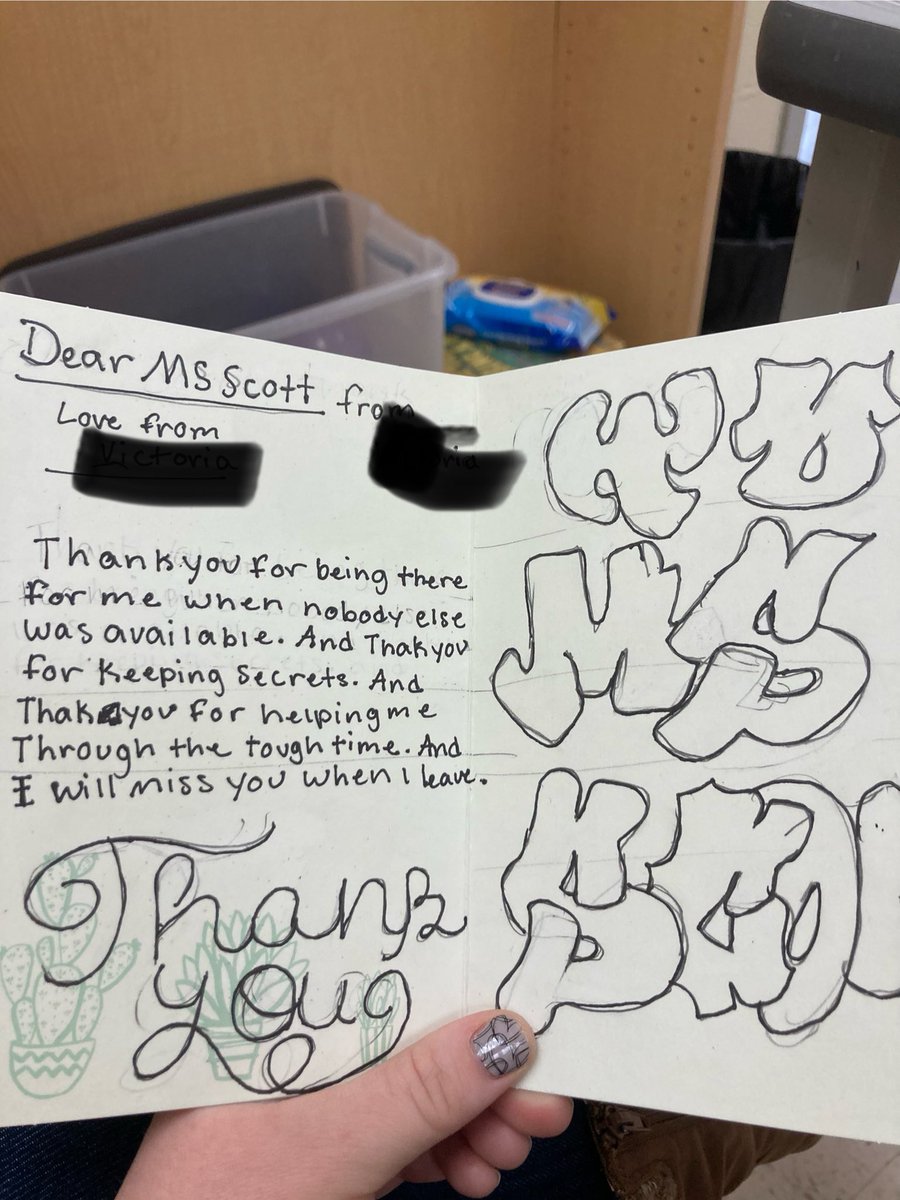 Dear MS Scott from
Love from
Thank you for being there
for me when nobody else
was available. And Thak you
for Keeping Secrets. And
Thak you for helping me
Through the tough time. And
I will miss you when I leave.
Thank
you
TO
MS
SCO